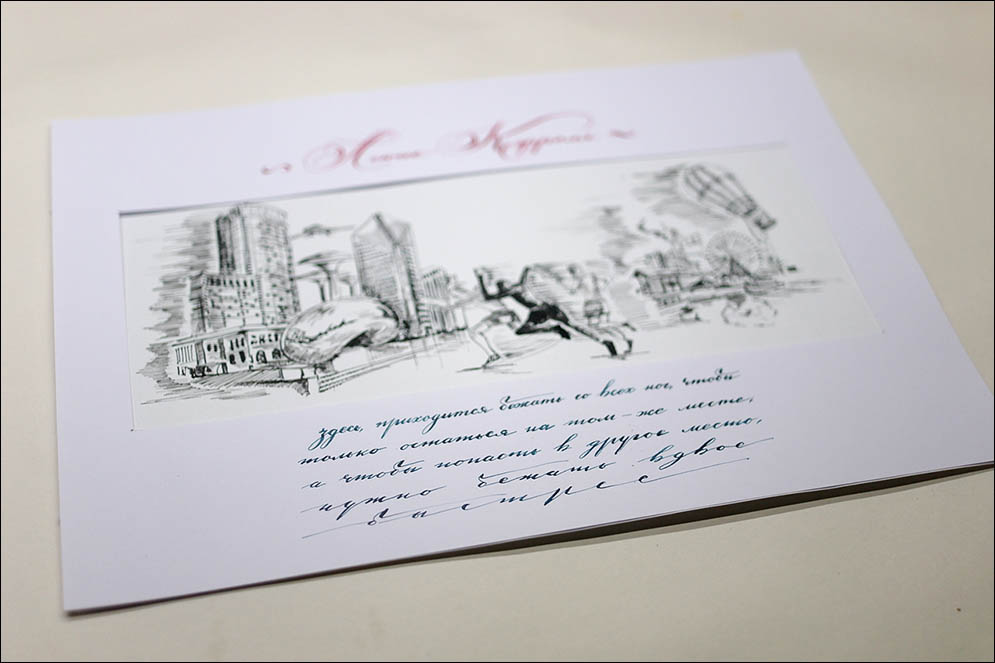 здесь, приходится бежать со всех ног, чтобы
только остаться на том-же месте,
а чтобы попасть в другое место,
нужно бежать вдвое
быстрее